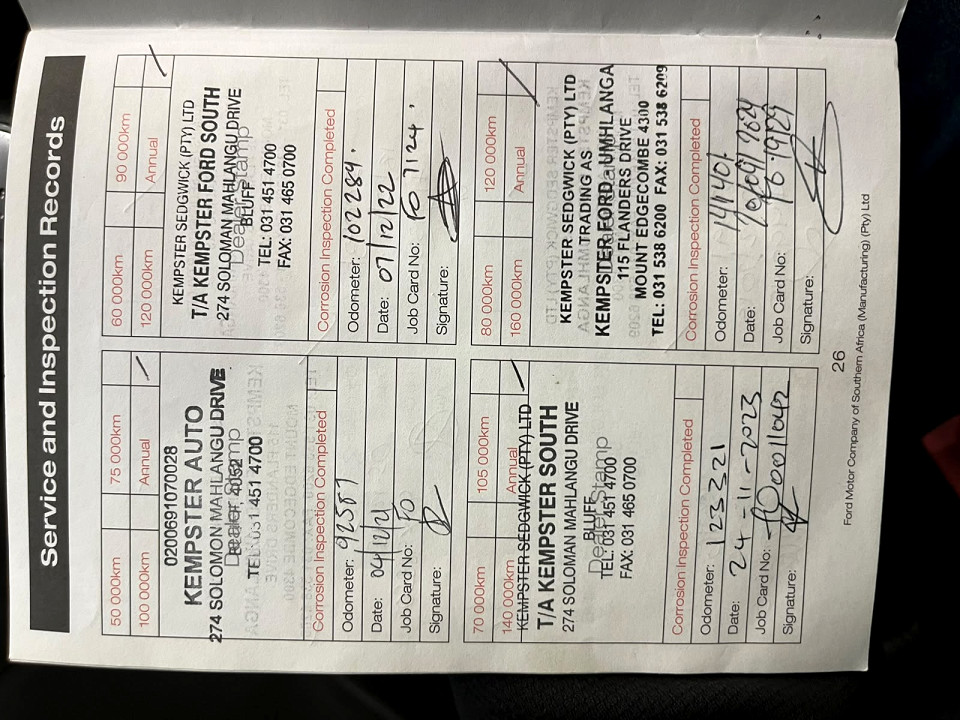 Service and Inspection Records
50 000km 75 000km
100 000km Annual
0200691070028
KEMPSTER AUTO
274 SOLOMON MAHLANGU DRIVE
Dealer Stamp
4052
TEL: 031 451 4700
Corrosion Inspection Completed
Odometer: 92557
Date: 04/12/21
Job Card No: FO
Signature:
60 000km 90 000km
120 000km Annual
KEMPSTER SEDGWICK (PTY) LTD
T/A KEMPSTER FORD SOUTH
274 SOLOMAN MAHLANGU DRIVE
Dealer Stamp
BLUFF
TEL: 031 451 4700
FAX: 031 465 0700
Corrosion Inspection Completed
Odometer: 102284.
Date: 07/12/22
Job Card No: FO 7124.
Signature:
70 000km 105 000km
140 000km Annual
KEMPSTER SEDGWICK (PTY) LTD
T/A KEMPSTER SOUTH
274 SOLOMAN MAHLANGU DRIVE
BLUFF
Dealer Stamp
TEL: 031 451 4700
FAX: 031 465 0700
Corrosion Inspection Completed
Odometer: 123221
Date: 24-11-2023
Job Card No: FO00011042
Signature:
80 000km 120 000km
160 000km Annual
KEMPSTER SEDGWICK (PTY) LTD
KEMPSTER TRADING AS
KEMPSTER FORD UMHLANGA
115 FLANDERS DRIVE
MOUNT EDGECOMBE 4300
TEL: 031 538 6200 FAX: 031 538 6209
Corrosion Inspection Completed
Odometer: 141401
Date:
Job Card No:
Signature:
26
Ford Motor Company of Southern Africa (Manufacturing) (Pty) Ltd